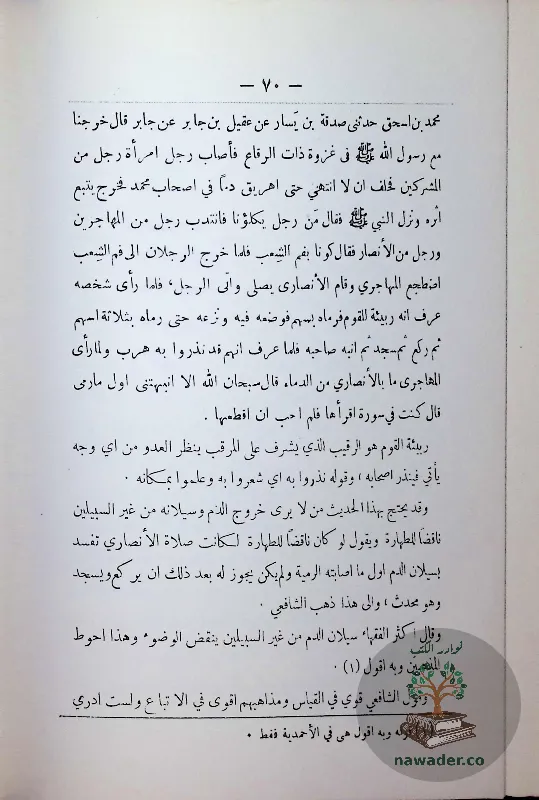 — ٧٠ —
محمد بن اسحق حدثنى صدقة بن يَسار عن عقيل بن جابر عن جابر قال خرجنا
مع رسول الله ﷺ فى غزوة ذات الرقاع فأصاب رجل امرأة رجل من
المشركين فحلف ان لا انتهي حتى اهريق دمًا في اصحاب محمد فخرج يتبع
اثره ونزل النبي ﷺ فقال مَن رجل يكلؤنا فانتدب رجل من المهاجرين
ورجل من الأنصار فقال كونا بفم الشِعب فلما خرج الرجلان الى فم الشِعب
اضطجع المهاجري وقام الأنصارى يصلى واتى الرجل، فلما رأى شخصه
عرف انه ربيئة للقوم فرماه بسهم فوضعه فيه ونزعه حتى رماه بثلاثة اسهم
ثم ركع ثم سجد ثم انبه صاحبه فلما عرف انهم قد نذروا به هرب ولما رأى
المهاجرى ما بالأنصاري من الدماء قال سبحان الله الا انبهتنى اول ما رمى
قال كنت في سورة اقرأها فلم احب ان اقطعها .
ربيئة القوم هو الرقيب الذي يشرف على المرقب ينظر العدو من اي وجه
يأتي فينذر اصحابه ، وقوله نذروا به اي شعروا به وعلموا بمكانه .
وقد يحتج بهذا الحديث من لا يرى خروج الدم وسيلانه من غير السبيلين
ناقضًا للطهارة ويقول لو كان ناقضًا للطهارة لكانت صلاة الأنصاري تفسد
بسيلان الدم اول ما اصابته الرمية ولم يكن يجوز له بعد ذلك ان يركع ويسجد
وهو محدث ، والى هذا ذهب الشافعي .
وقال اكثر الفقهاء سيلان الدم من غير السبيلين ينقض الوضوء وهذا احوط
المذهبين وبه اقول (١) .
وقول الشافعي قوي في القياس ومذاهبهم اقوى في الاتباع ولست ادري
وبه اقول هى في الأحمدية فقط .
نوادر الكتب
nawader.co